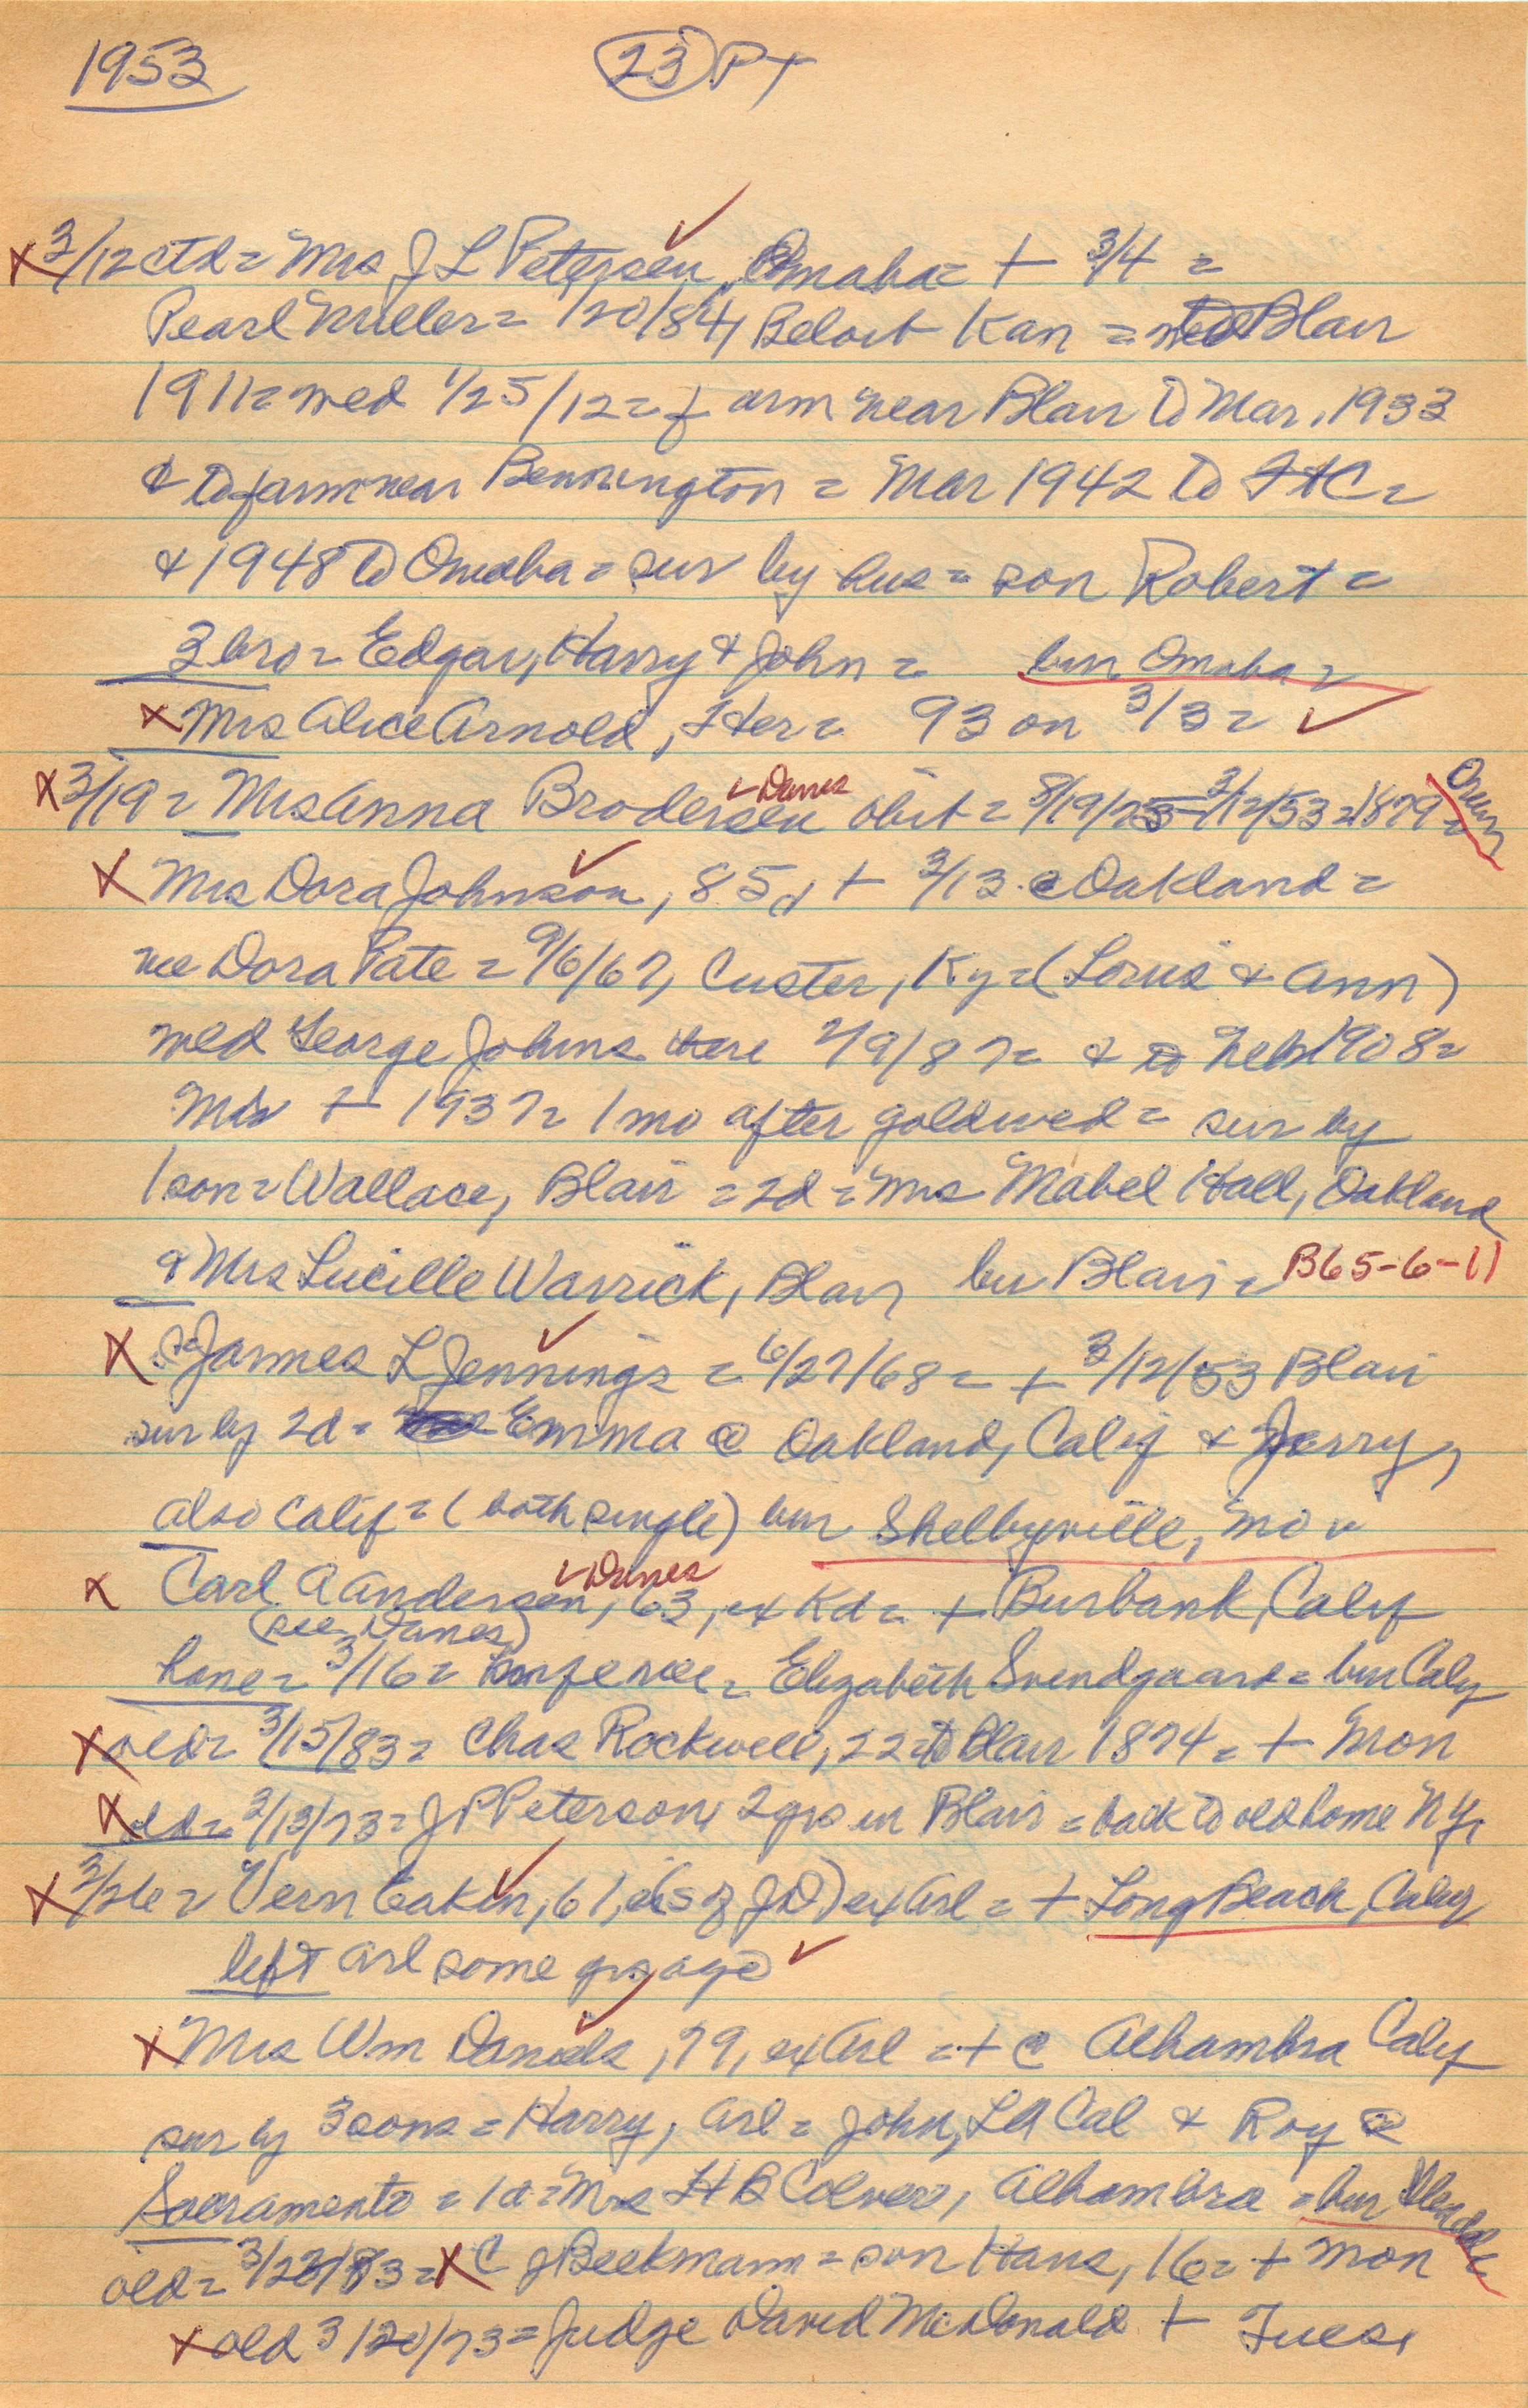 1953 (23) PT
X 3/12 ctd = Mrs J L Petersen, Omaha = + 3/4 =
Pearl Miller = 1/20/84, Beloit Kan = to Blair
1911 = wed 1/25/12 = farm near Blair to Mar. 1933
& to farm near Bennington = Mar 1942 to FtC =
& 1948 to Omaha = sur by hus = son Robert =
3 bro = Edgar, Harry & John = bur Omaha =
X Mrs Alice Arnold, Her = 93 on 3/3 = ✓
X 3/19 = Mrs Anna Brodersen ✓ Danes obit = 8/19/75 - 3/12/53 = 1879 =
X Mrs Dora Johnson, 85, + 3/13 @ Oakland =
nee Dora Pate = 9/6/67, Custer, Ky = (Lorus & Ann)
wed George Johns there 2/9/87 = & to Neb 1908 =
Mr + 1937 = 1 mo after goldwed = sur by
1 son = Wallace, Blair = 2d = Mrs Mabel Hall, Oakland
& Mrs Lucille Warrick, Blair bur Blair = B65-6-11
X James L Jennings = 6/27/68 = + 3/12/53 Blair
sur by 2d = Emma @ Oakland, Calif & Jerry,
also Calif = (both single) bur Shelbyville, Mo
X Carl A Andersen ✓ Danes, 63, ex Kd = + Burbank, Calif
(see Danes)
home = 3/16 = = Elizabeth Svendgaard = bur Calif
X old = 3/15/83 = Chas Rockwell, 22 = to Blair 1874 = + Mon
X old = 3/13/73 = J P Peterson, 2 yrs in Blair = back to old home NY,
X 3/26 = Vern Eakin, 61, (s of JD) ex Arl = + Long Beach, Calif
left Arl some yrs ago ✓
X Mrs Wm Daniels, 79, ex Arl = + @ Alhambra Calif
sur by 3 sons = Harry, Arl = John, LA Cal & Roy @
Sacramento = 1d = Mrs H B Colver, Alhambra = bur Glendale
old = 3/22/83 = X C J Beekmann = son Hans, 16 = + Mon
X old 3/20/73 = Judge David McDonald + Tues,